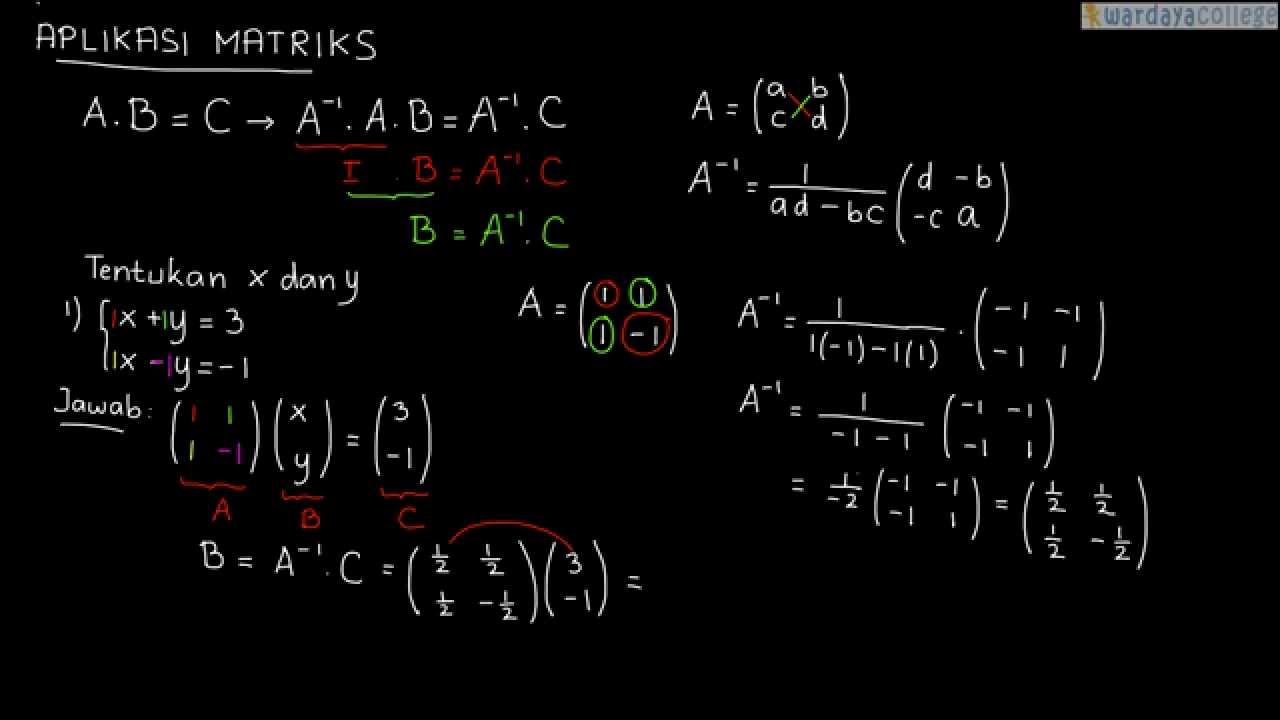 wardayacollege
APLIKASI MATRIKS
A.B = C → A⁻¹.A.B = A⁻¹.C
I . B = A⁻¹.C
B = A⁻¹.C
A = (a b
c d)
A⁻¹ = 1/(ad - bc) (d -b
-c a)
Tentukan x dan y
1) { 1x +1y = 3
1x -1y = -1
A = (1 1
1 -1)
A⁻¹ = 1/(1(-1)-1(1)) . (-1 -1
-1 1)
Jawab: (1 1
1 -1) (x
y) = (3
-1)
A B C
A⁻¹ = 1/(-1 - 1) (-1 -1
-1 1)
= 1/-2 (-1 -1
-1 1) = (1/2 1/2
1/2 -1/2)
B = A⁻¹.C = (1/2 1/2
1/2 -1/2) (3
-1) =